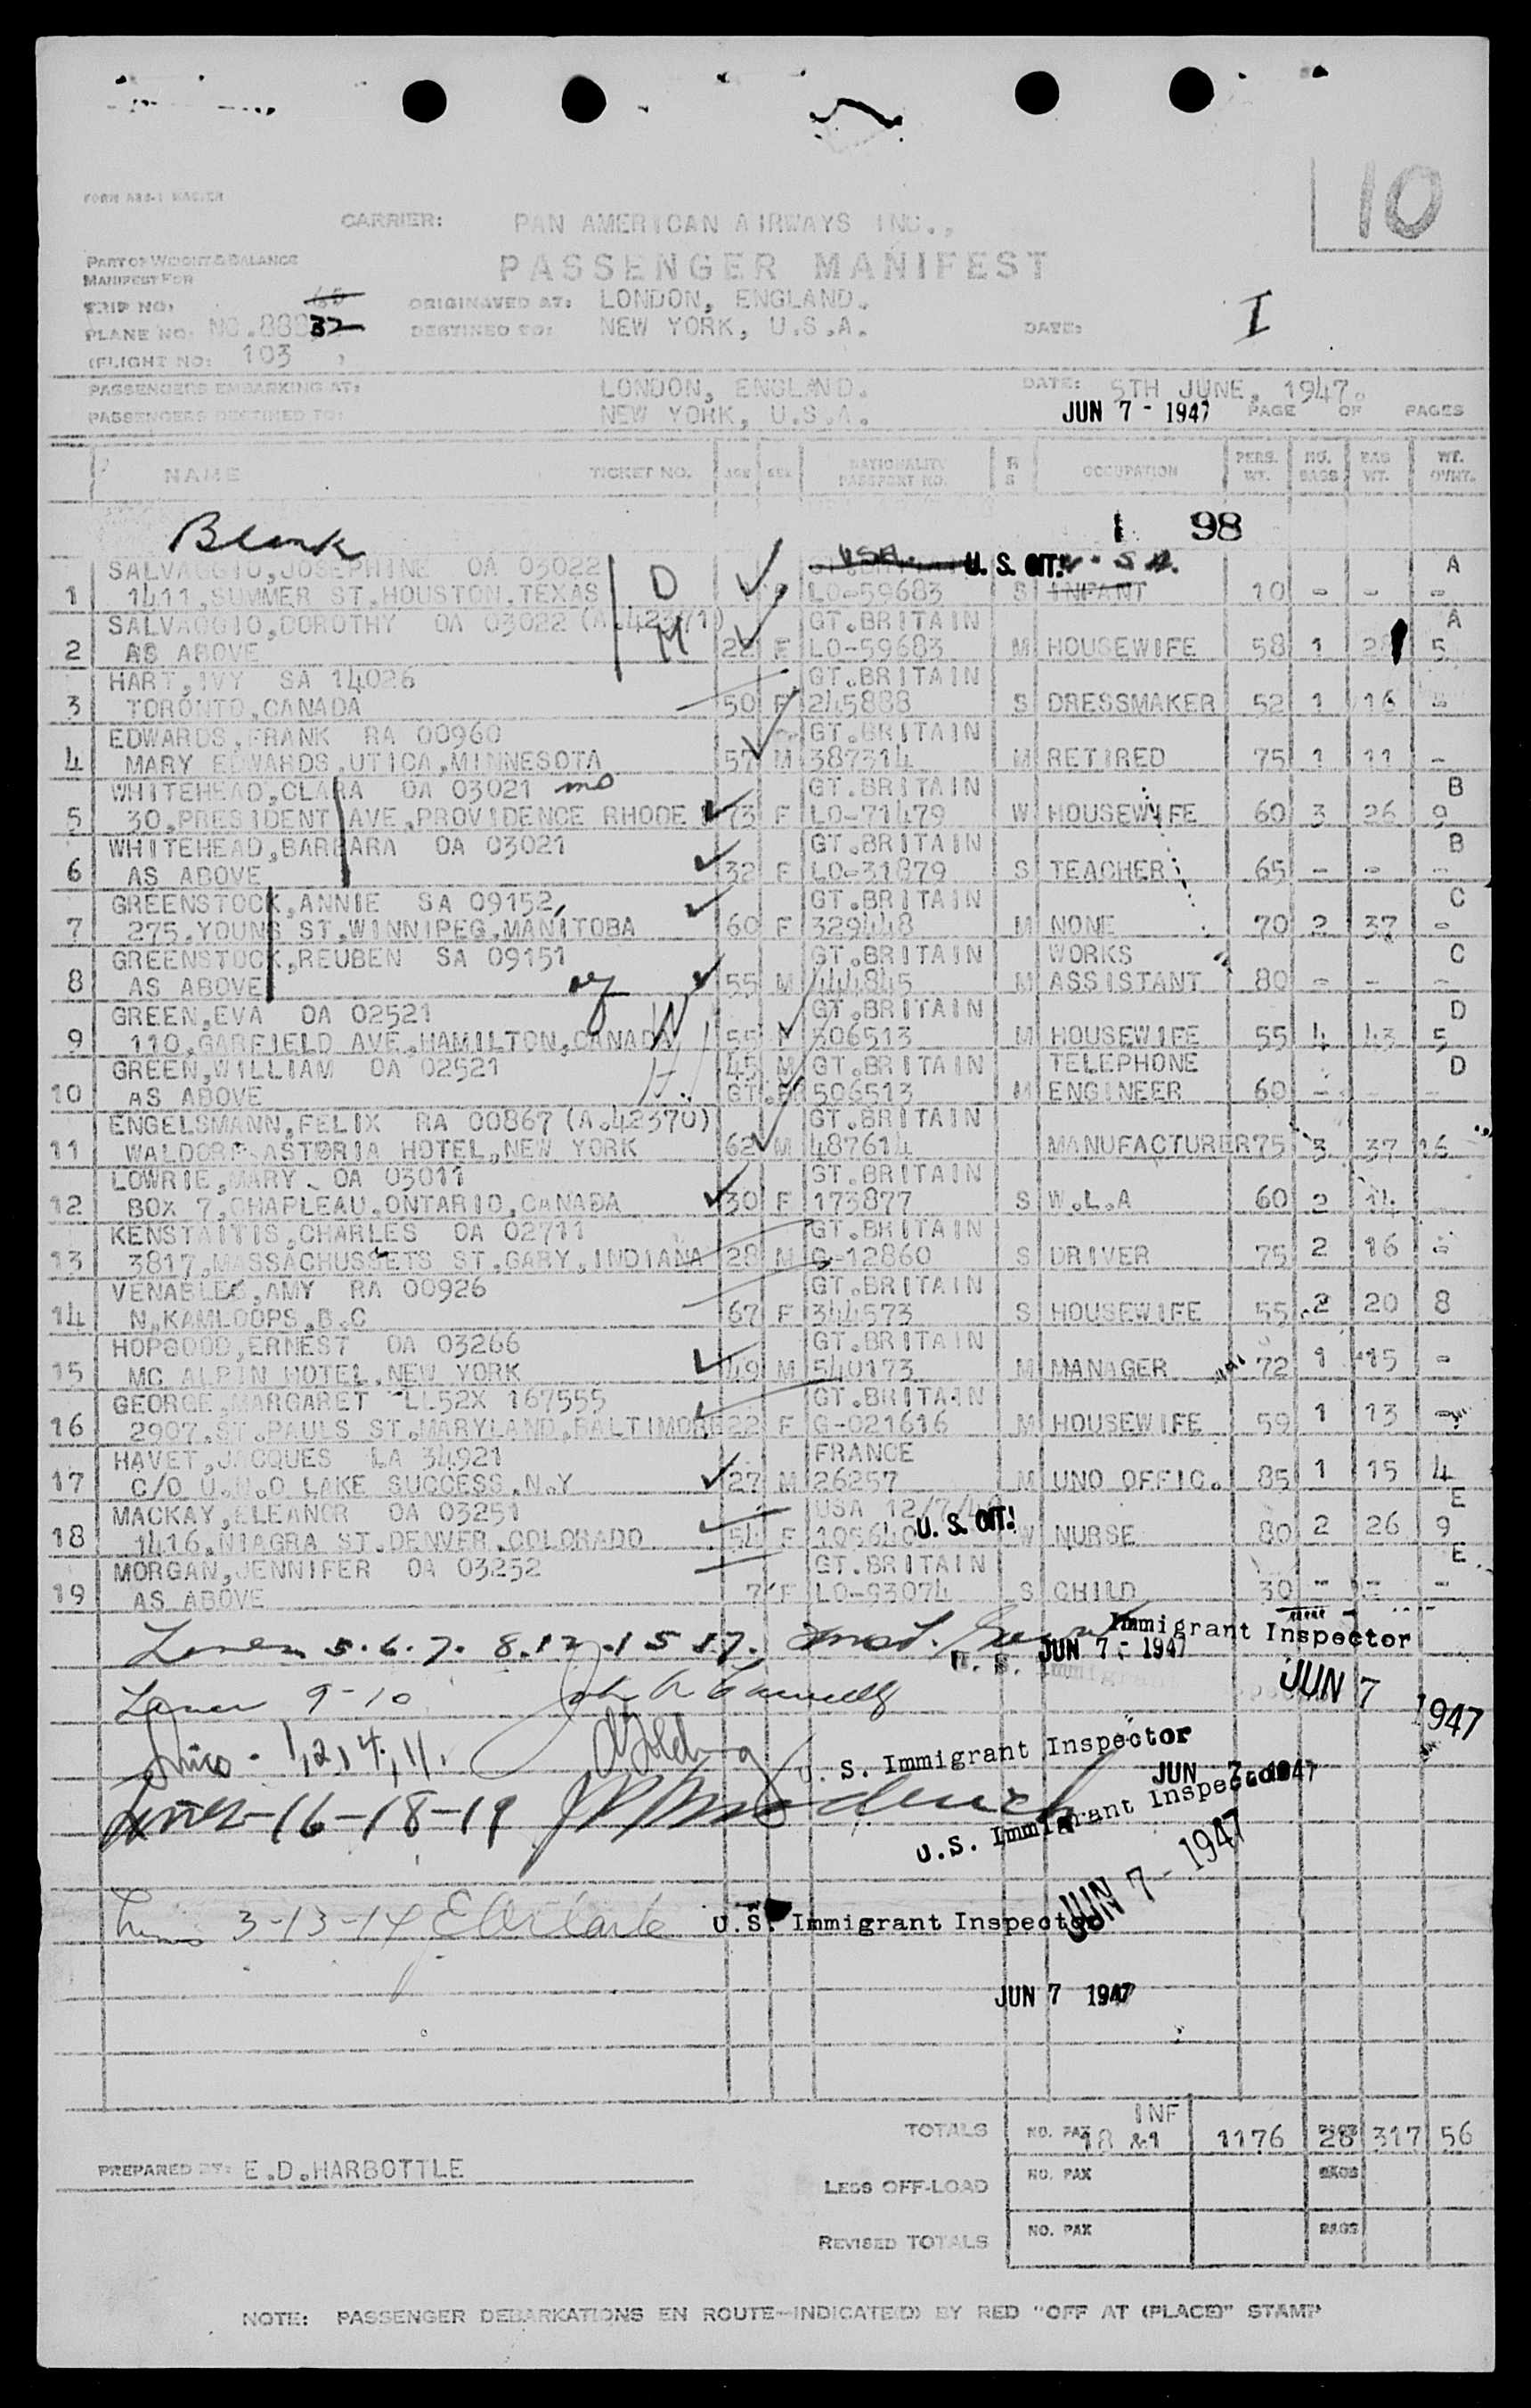 10
FORM ABS-1 MASTER
CARRIER: PAN AMERICAN AIRWAYS INC.,
PART OF WEIGHT & BALANCE
MANIFEST FOR
PASSENGER MANIFEST
TRIP NO: ORIGINATED AT: LONDON, ENGLAND.
PLANE NO. NC.888 32 DESTINED TO: NEW YORK, U.S.A. DATE: I
(FLIGHT NO: 103 )
PASSENGERS EMBARKING AT: LONDON, ENGLAND. DATE: 5TH JUNE, 1947.
PASSENGERS DESTINED TO: NEW YORK, U.S.A. JUN 7 - 1947 PAGE OF PAGES
NAME TICKET NO. AGE SEX NATIONALITY PASSPORT NO. OCCUPATION PERS. WT. NO. BAGS BAG WT. WT. OVWT.
Blank 1 98
SALVAGGIO,JOSEPHINE OA 03022 D USA. U. S. CIT. U.S.A. A
1 1411,SUMMER ST.HOUSTON.TEXAS LO-59683 S INFANT 10 - - -
SALVAGGIO,DOROTHY OA 03022 (A.42371) GT.BRITAIN A
2 AS ABOVE M 22 F LO-59683 M HOUSEWIFE 58 1 28 5
HART,IVY SA 14026 GT.BRITAIN
3 TORONTO,CANADA 50 F 245888 S DRESSMAKER 52 1 16 -
EDWARDS,FRANK RA 00960 GT.BRITAIN
4 MARY EDWARDS,UTICA,MINNESOTA 57 M 387314 M RETIRED 75 1 11 -
WHITEHEAD,CLARA OA 03021 GT.BRITAIN B
5 30,PRESIDENT AVE,PROVIDENCE RHODE 73 F LO-71479 W HOUSEWIFE 60 3 26 9
WHITEHEAD,BARBARA OA 03021 GT.BRITAIN B
6 AS ABOVE 32 F LO-31879 S TEACHER 65 - - -
GREENSTOCK,ANNIE SA 09152 GT.BRITAIN C
7 275,YOUNG ST.WINNIPEG,MANITOBA 60 F 329448 M NONE 70 2 37 -
GREENSTOCK,REUBEN SA 09151 GT.BRITAIN WORKS C
8 AS ABOVE 55 M 444845 M ASSISTANT 80 - - -
GREEN,EVA OA 02521 GT.BRITAIN D
9 110,GARFIELD AVE,HAMILTON,CANADA W 55 F 506513 M HOUSEWIFE 55 4 43 5
GREEN,WILLIAM OA 02521 45 M GT.BRITAIN TELEPHONE D
10 AS ABOVE H. GT.BR 506513 M ENGINEER 60 - - -
ENGELSMANN,FELIX RA 00867 (A.42370) GT.BRITAIN
11 WALDORF ASTORIA HOTEL,NEW YORK 62 M 487614 MANUFACTURER 75 3 37 16
LOWRIE,MARY OA 03011 GT.BRITAIN
12 BOX 7,CHAPLEAU.ONTARIO,CANADA 30 F 173877 S W.L.A 60 2 14
KENSTAITIS,CHARLES OA 02711 GT.BRITAIN
13 3817,MASSACHUSSETS ST.GARY,INDIANA 28 M G-12860 S DRIVER 75 2 16 -
VENABLES,AMY RA 00926 GT.BRITAIN
14 N.KAMLOOPS,B.C 67 F 344573 S HOUSEWIFE 55 2 20 8
HOPGOOD,ERNEST OA 03266 GT.BRITAIN
15 MC ALPIN HOTEL,NEW YORK 49 M 540173 M MANAGER 72 1 15 -
GEORGE,MARGARET LL52X 167555 GT.BRITAIN
16 2907,ST.PAULS ST.MARYLAND,BALTIMORE 22 F G-021616 M HOUSEWIFE 59 1 13 -
HAVET,JACQUES LA 34921 FRANCE
17 C/O U.N.O LAKE SUCCESS,N.Y 27 M 26257 M UNO OFFIC. 85 1 15 4
MACKAY,ELEANOR OA 03251 USA E
18 1416,NIAGRA ST.DENVER,COLORADO 54 F 105640 U. S. CIT. W NURSE 80 2 26 9
MORGAN,JENNIFER OA 03252 GT.BRITAIN E
19 AS ABOVE 7 F LO-93074 S CHILD 30 - - -
Lines 5.6.7.8.12.15.17. Immigrant Inspector
JUN 7 - 1947
Lines 9-10 JUN 7 1947
Lines - 1,2,4,11. U. S. Immigrant Inspector
JUN 7 1947
Lines-16-18-19 U.S. Immigrant Inspector
JUN 7 - 1947
Lines 3-13-14 U.S. Immigrant Inspector
JUN 7 1947
TOTALS NO. PAX 18 &1 INF 1176 28 317 56
PREPARED BY: E.D.HARBOTTLE
LESS OFF-LOAD NO. PAX BAGS
REVISED TOTALS NO. PAX BAGS
NOTE: PASSENGER DEBARKATIONS EN ROUTE-INDICATE(D) BY RED "OFF AT (PLACE)" STAMP